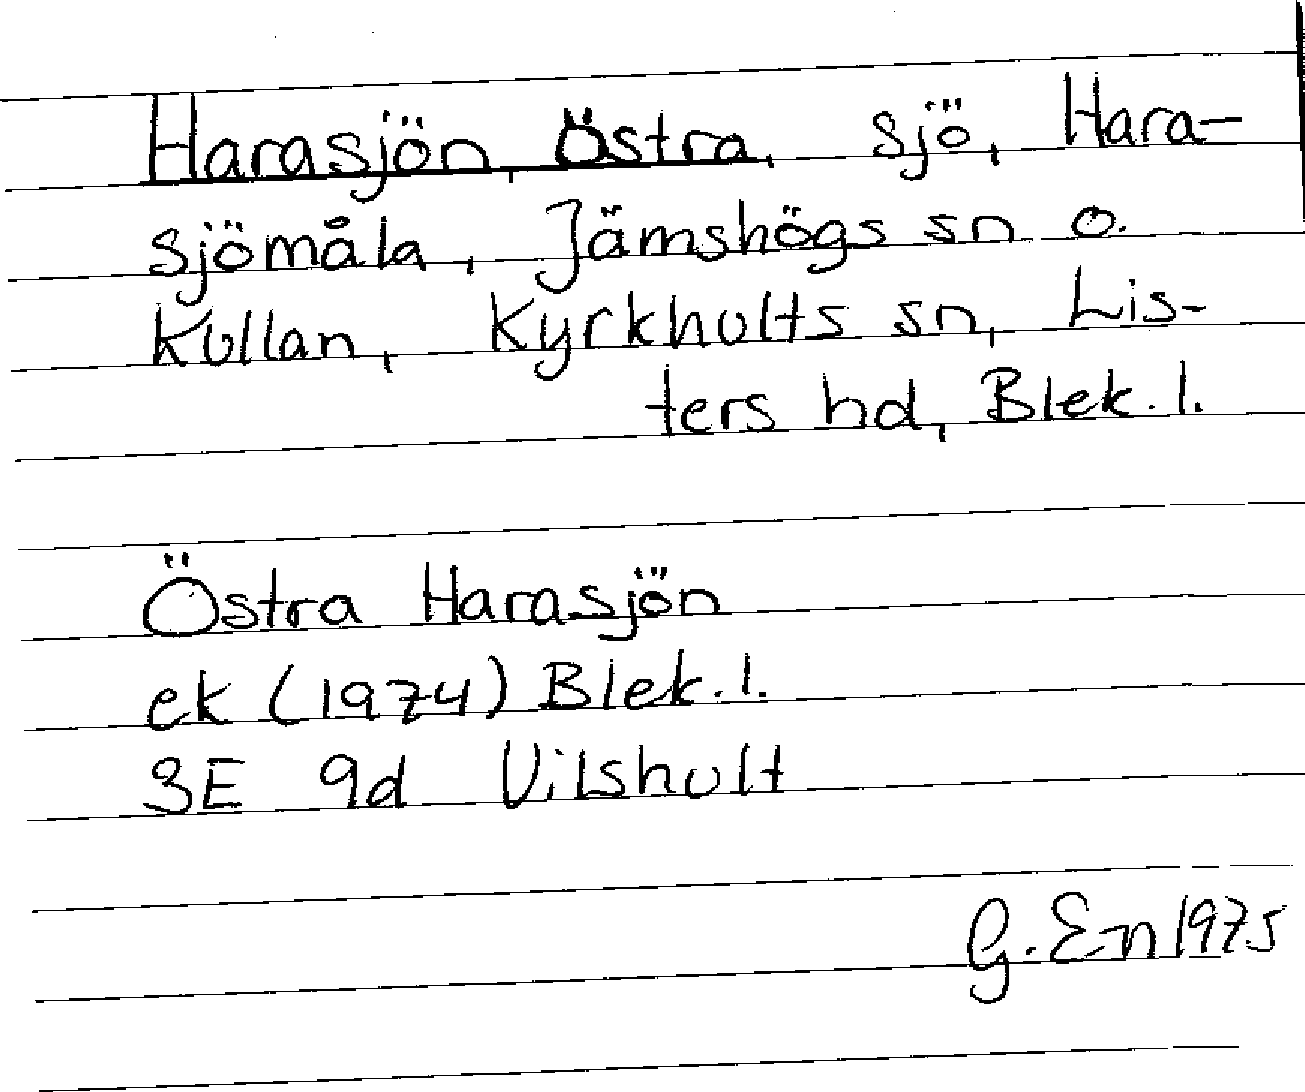 Harasjön, Östra, sjö, Hara-
sjömåla, Jämshögs sn o.
Kullan, Kyrkhults sn, Lis-
ters hd, Blek. l.
Östra Harasjön
ek (1974) Blek. l.
3E 9d Vilshult
G. En 1975